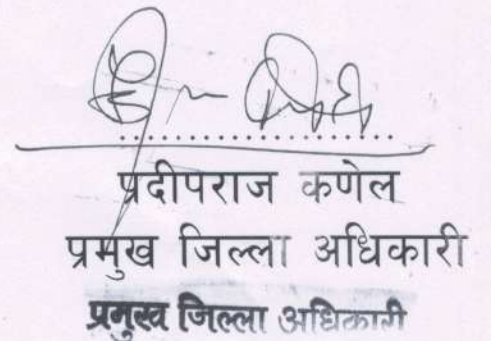 प्रदीपराज कणेल
प्रमुख जिल्ला अधिकारी
प्रमुख जिल्ला अधिकारी